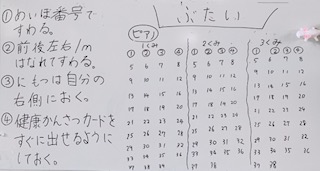 ①めいぼ番号で
すわる。
②前後左右1m
はなれてすわる。
③にもつは自分の
右側におく。
④健康かんさつカードを
すぐに出せるように
しておく。
ぶたい
ピアノ
1くみ
① ② ③ ④
5 6 7 8
9 10 11 12
13 14 15 16
17 18 19 20
21 22 23 24
25 26 27 28
29 30 31 32
33 34 35 36
37 38 39
2くみ
① ② ③ ④
5 6 7 8
9 10 11 12
13 14 15 16
17 18 19 20
21 22 23 24
25 26 27 28
29 30 31 32
33 34 35 36
3くみ
① ② ③ ④
5 6 7 8
9 10 11 12
13 14 15 16
17 18 19 20
21 22 23 24
25 26 27 28
29 30 31 32
33 34 35 36
38